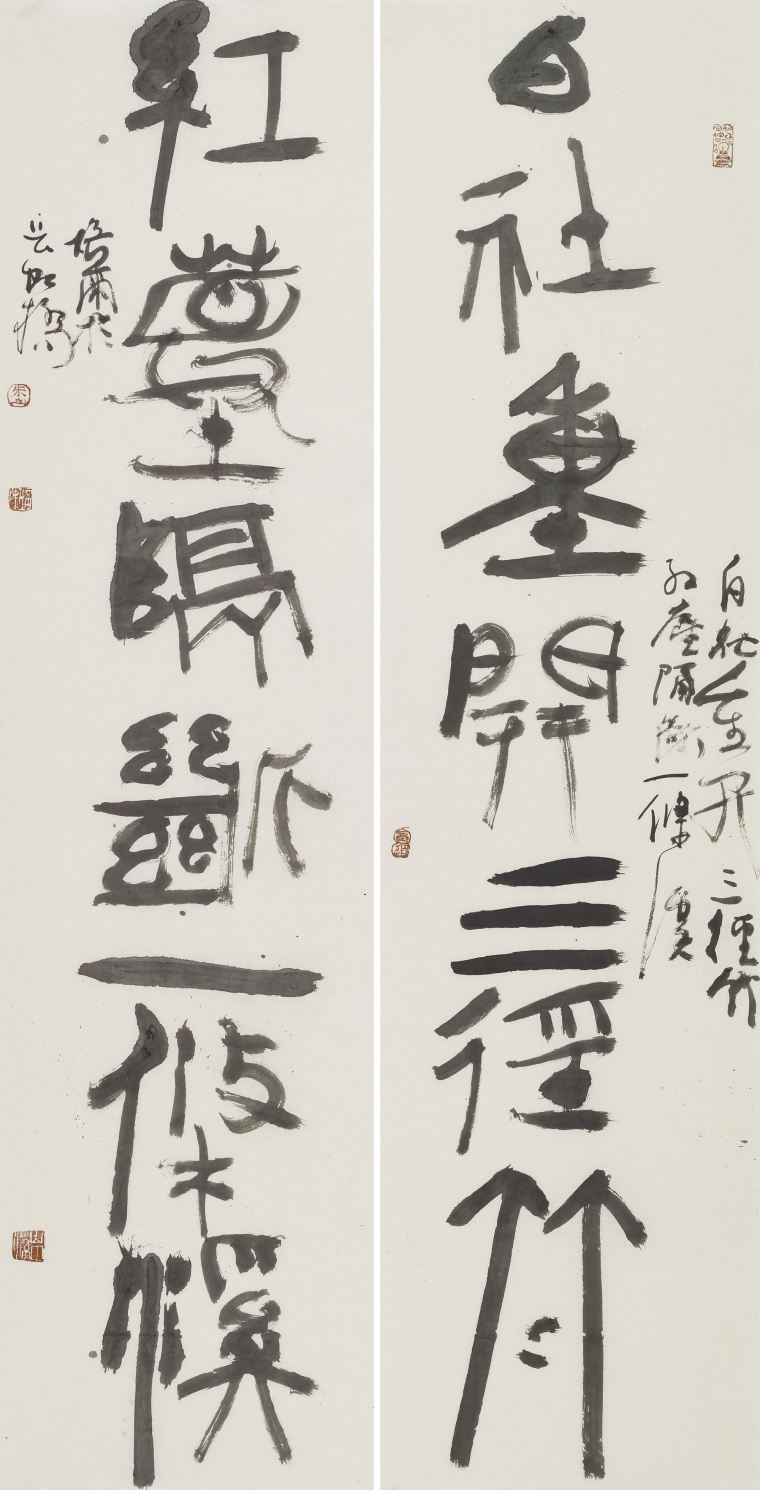 白社重開三徑竹
紅塵隔斷一條溪
白社重开三徑竹
紅塵隔斷一條溪
培爾於
虹橋